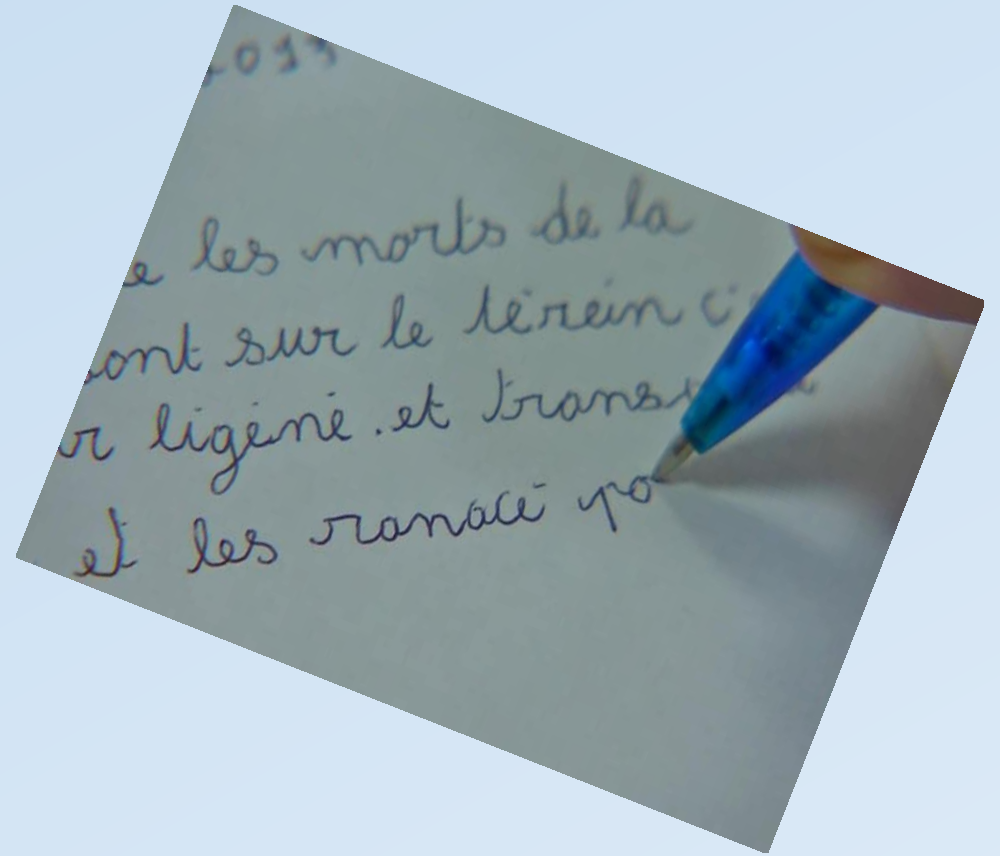 2013
les morts de la
sont sur le térein
ligéné. et
et les ranacé po